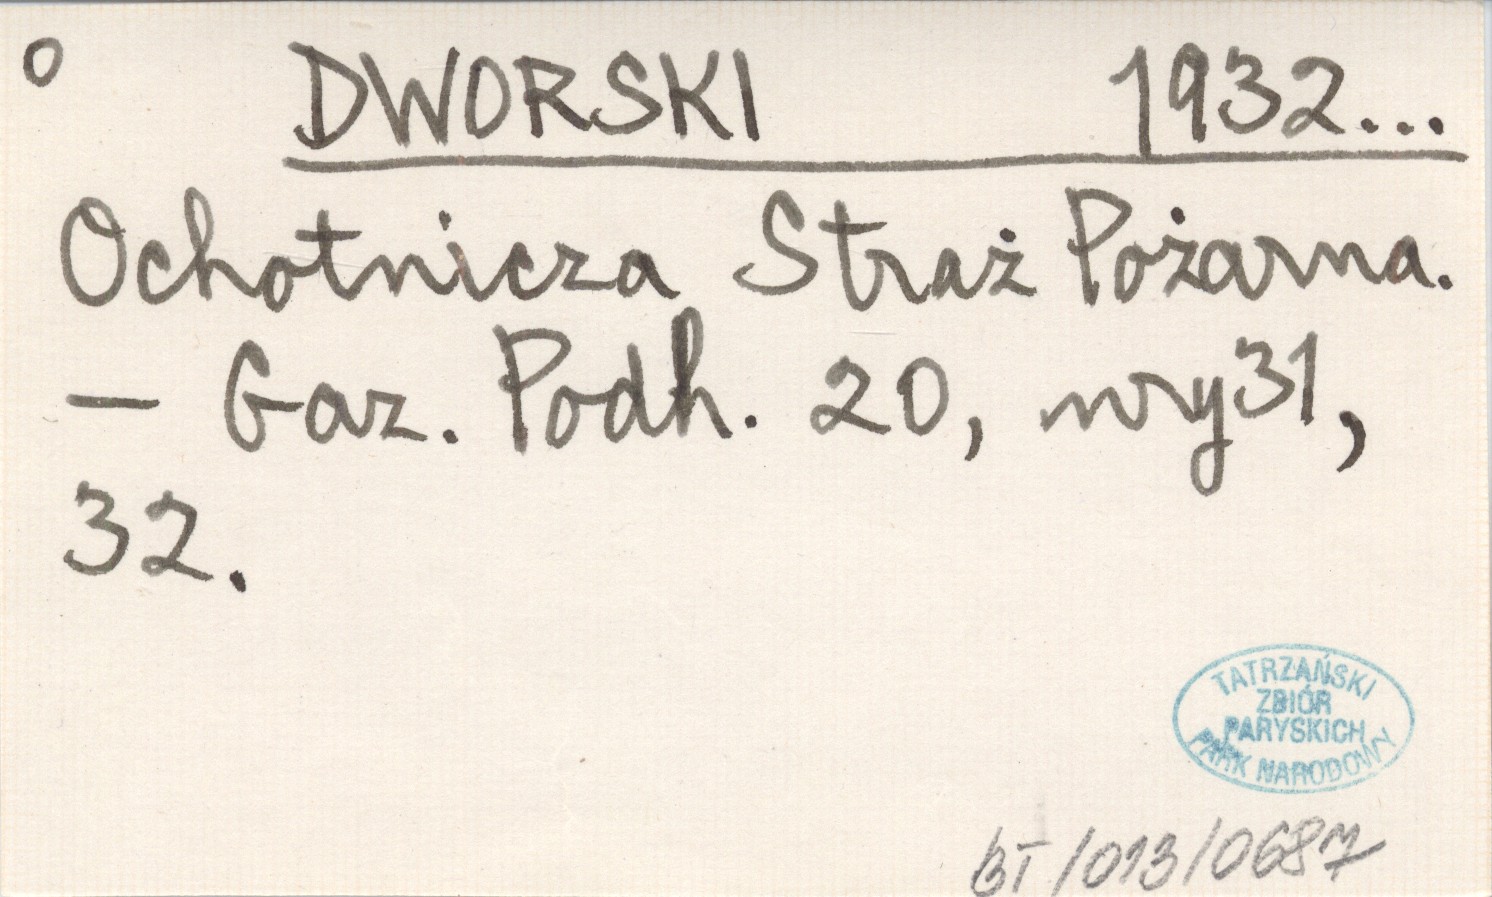 o DWORSKI 1932...
Ochotnicza Straż Pożarna.
— Gaz. Podh. 20, nry 31,
32.
TATRZAŃSKI
ZBIÓR
PARYSKICH
PARK NARODOWY
BT/013/0687